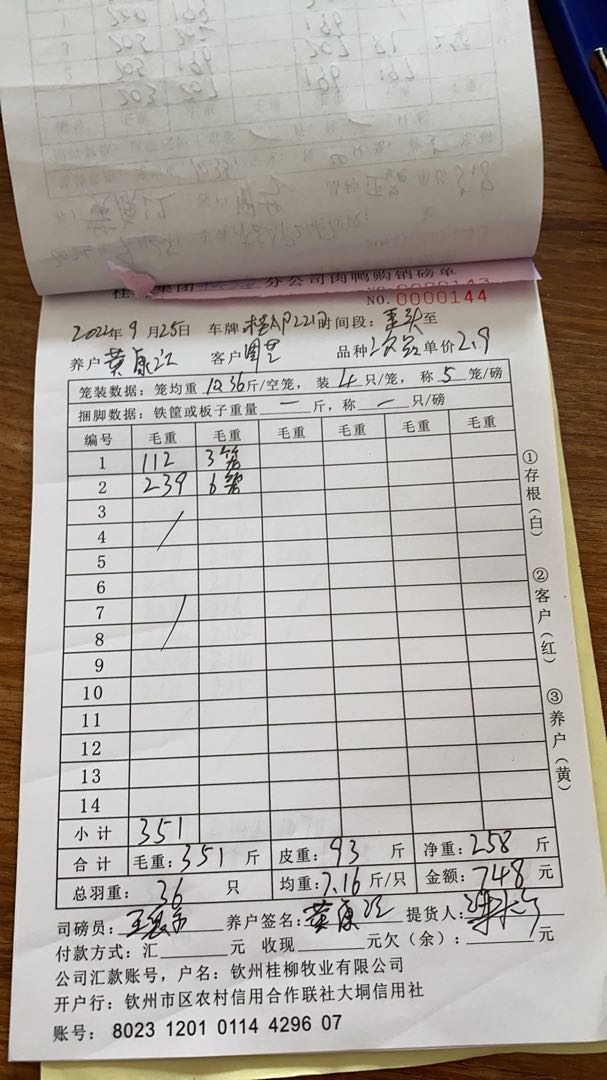 集团 分公司肉鸭购销磅单
NO.0000144
2022年9月25日 车牌 221 时间段: 至
养户 黄康江 客户 周 品种 次品 单价2.9
笼装数据:笼均重10.36斤/空笼,装4只/笼,称5笼/磅
捆脚数据:铁筐或板子重量—斤,称—只/磅
编号 毛重 毛重 毛重 毛重 毛重 毛重
1 112 3笼
2 239 6笼
3
4
5
6
7
8
9
10
11
12
13
14
小计 351
合计 毛重:351斤 皮重:93斤 净重:258斤
总羽重:36只 均重:7.16斤/只 金额:748元
司磅员: 养户签名:黄康江 提货人:
付款方式:汇 元 收现 元欠(余): 元
公司汇款账号,户名:钦州桂柳牧业有限公司
开户行:钦州市区农村信用合作联社大垌信用社
账号:8023 1201 0114 4296 07
①存根(白)
②客户(红)
③养户(黄)